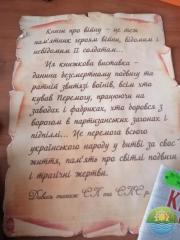 Книги про війну – це теж
пам'ятник героям війни, відомим і
невідомим її солдатам...
Ця книжкова виставка –
данина безсмертному подвигу та
ратній звитязі воїнів, всім хто
кував Перемогу, працюючи на
заводах і фабриках, хто боровся з
ворогом в партизанських загонах і
підпіллі... Це перемога всього
українського народу у битві за своє
життя, пам'ять про світлі подвиги
і трагічні жертви.